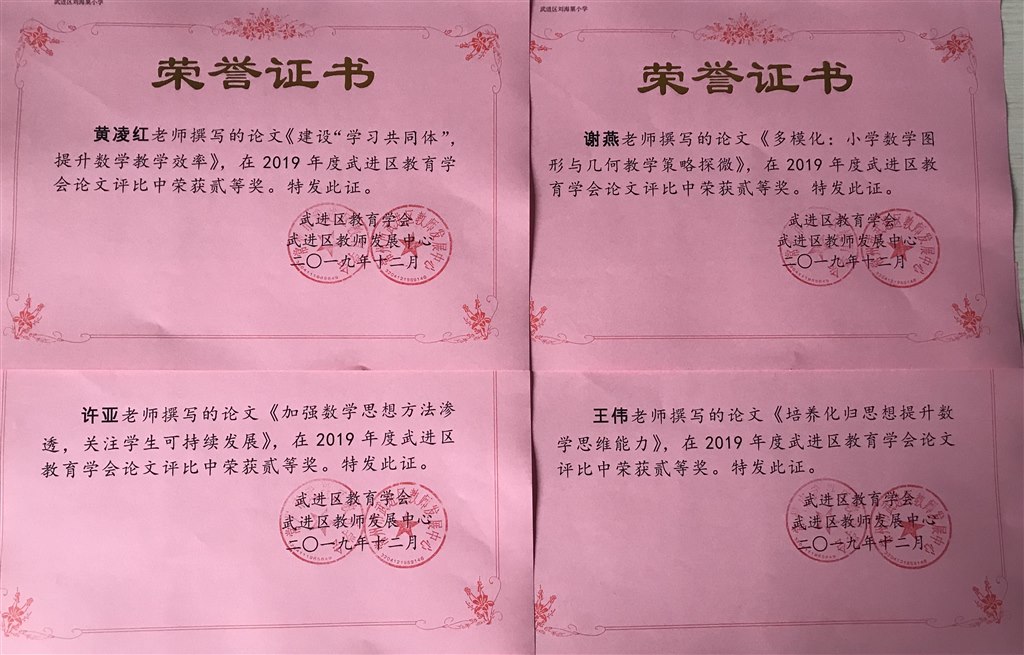 武进区刘海粟小学
荣誉证书
黄凌红老师撰写的论文《建设“学习共同体”，
提升数学教学效率》，在 2019 年度武进区教育学
会论文评比中荣获贰等奖。特发此证。
武进区教育学会
武进区教师发展中心
二〇一九年十二月
武进区刘海粟小学
荣誉证书
谢燕老师撰写的论文《多模化：小学数学图
形与几何教学策略探微》，在 2019 年度武进区教
育学会论文评比中荣获贰等奖。特发此证。
武进区教育学会
武进区教师发展中心
二〇一九年十二月
许亚老师撰写的论文《加强数学思想方法渗
透，关注学生可持续发展》，在 2019 年度武进区
教育学会论文评比中荣获贰等奖。特发此证。
武进区教育学会
武进区教师发展中心
二〇一九年十二月
王伟老师撰写的论文《培养化归思想提升数
学思维能力》，在 2019 年度武进区教育学会论文
评比中荣获贰等奖。特发此证。
武进区教育学会
武进区教师发展中心
二〇一九年十二月